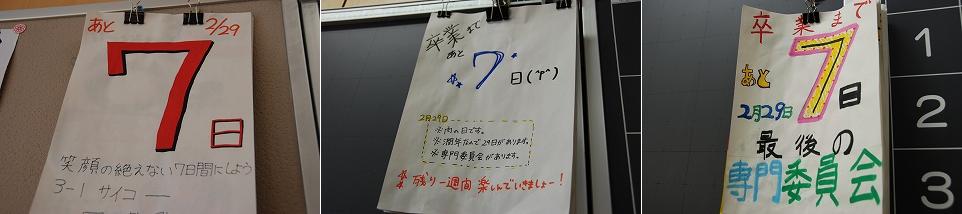 あと 2/29
7
日
笑顔の絶えない7日間にしよう
3-1 サイコー
卒業まで
あと
7日(^p^)
2月29日
※肉の日です。
※潤年なんで29日があります。
※専門委員会があります。
残り一週間楽しんでいきましょー!
卒業まで
あと7日
2月29日
最後の
専門委員会
1
2
3